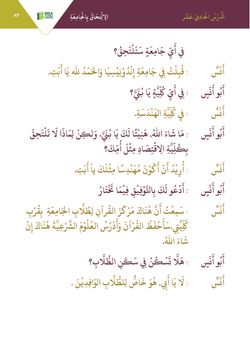 الدَّرْسُ الحَادِيَ عَشَرَ
الِالْتِحَاقُ بِالْجَامِعَةِ
٨٣
فِي أَيِّ جَامِعَةٍ سَتَلْتَحِقُ؟
أَنَسٌ : قُبِلْتُ فِي جَامِعَةِ إِنْدُونِيْسِيَا وَالْحَمْدُ لله يَا أَبَتِ.
أَبُو أَنَسٍ : فِي أَيِّ كُلِّيَّةٍ يَا بُنَيَّ؟
أَنَسٌ : فِي كُلِّيَّةِ الهَنْدَسَةِ.
أَبُو أَنَسٍ : مَا شَاءَ اللهُ، هَنِيْئًا لَكَ يَا بُنَيَّ، وَلَكِنْ لِمَاذَا لَا تَلْتَحِقُ
بِكُلِّيَّةِ الِاقْتِصَادِ مِثْلَ أُمِّكَ؟
أَنَسٌ : أُرِيْدُ أَنْ أَكُوْنَ مُهَنْدِسًا مِثْلَكَ يَا أَبَتِ.
أَبُو أَنَسٍ : أَدْعُو لَكَ بِالتَّوْفِيْقِ فِيْمَا تَخْتَارُ
أَنَسٌ : سَمِعْتُ أَنَّ هُنَاكَ مَرْكَزَ القُرآنِ لِطُلَّابِ الجَامِعَةِ بِقُرْبِ
كُلِّيَّتِي،سَأَحْفَظُ القُرْآنَ وَأَدْرُسُ العُلُوْمَ الشَّرْعِيَّةَ هُنَاكَ إِنْ
شَاءَ اللهُ.
أَبُو أَنَسٍ : هَلَّا تَسْكُنُ فِي سَكَنِ الطُّلَّابِ؟
أَنَسٌ : لَا يَا أَبِي. هُوَ خَاصٌّ لِلطُّلَّابِ الوَافِدِيْنَ .